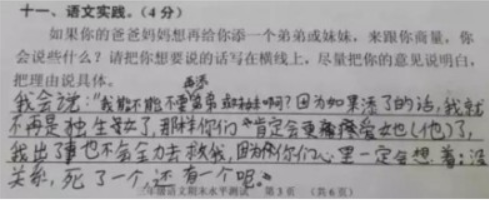 十一、语文实践。(4分)
如果你的爸爸妈妈想再给你添一个弟弟或妹妹，来跟你商量，你
会说些什么？请把你想要说的话写在横线上，尽量把你的意见说明白，
把理由说具体。
再添
我会说："我能不能不要弟弟或妹妹啊？因为如果添了的话，我就
不再是独生子女了，那样你们肯定会更疼爱她(他)了，
我出了事也不会全力去救我，因为你们心里一定会想着：没
关系，死了一个，还有一个呢。"
年级语文期末水平测试 第3页 (共6页)